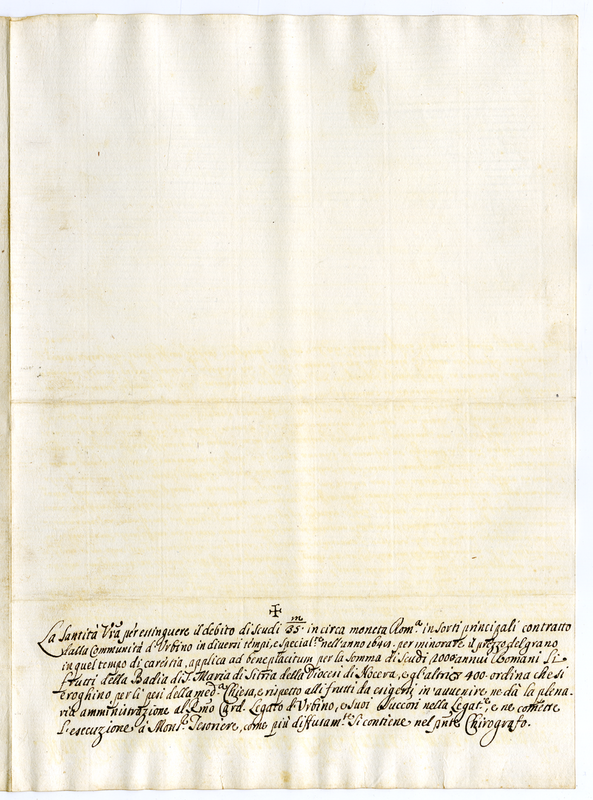 ✠
La Santità Vrã per estinguere il debito di scudi 35 m in circa moneta Rom.ª in sorti principali contratto
dalla Communità d'Urbino in diuersi tempi, e special.te nell'anno 1649. per minorare il prezzo del grano
in quel tempo di carestia, applica ad beneplacitum per la somma di scudi 2000 annui Romani li
frutti della Badia di S. Maria di Sitria della Diocesi di Nocera, e gl'altri 400 ordina che si
eroghino per li pesi della med.ª Chiesa, e rispetto alli frutti da esigersi in auuenire ne dà la plena-
ria amministrazione al Em̃o Card. Legato d'Urbino, e suoi Succõri nella Legat.e, e ne com̃ette
l'esecuzione à Mons.r Tesoriere, come più diffusam.te si contiene nel pñte Chirografo.